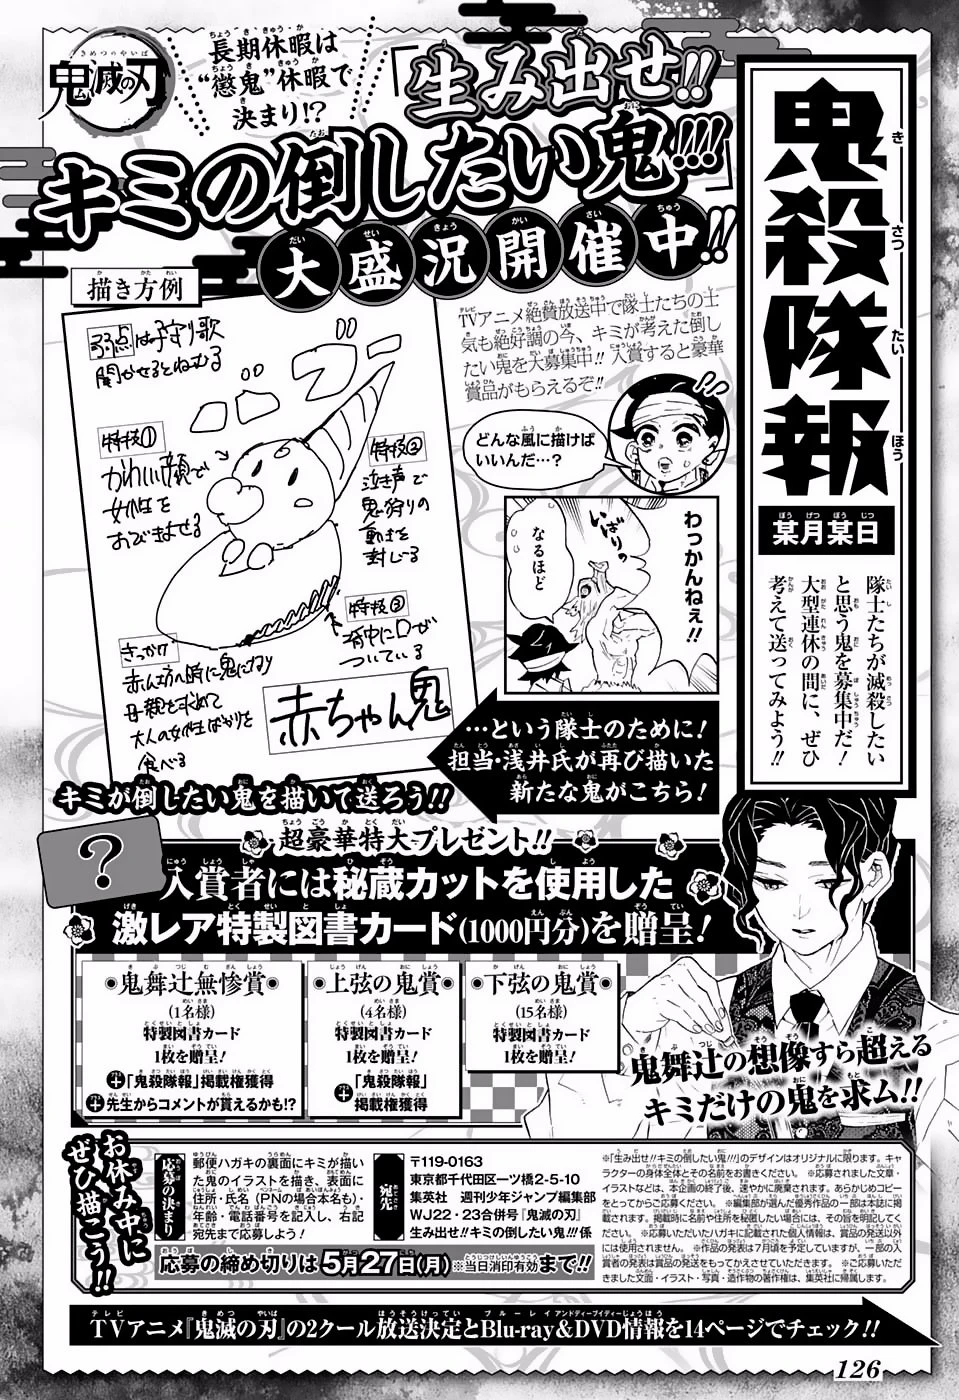 鬼滅の刃
長期休暇は
“懲鬼”休暇で
決まり!?
「生み出せ!!
キミの倒したい鬼!!!」
大盛況開催中!!
鬼殺隊報
某月某日
隊士たちが滅殺したい
と思う鬼を募集中だ!
大型連休の間に、ぜひ
考えて送ってみよう!!
描き方例
弱点は子守り歌
聞かせるとねむる
特技①
かわいい顔で
女性を
おびきよせる
特技②
泣き声で
鬼狩りの
動きを
封じる
特技③
背中に口が
ついている
きっかけ
赤ん坊の時に鬼になり
母親を求めて
大人の女性ばかりを
食べる
赤ちゃん鬼
TVアニメ絶賛放送中で隊士たちの士
気も絶好調の今、キミが考えた倒し
たい鬼を大募集中!! 入賞すると豪華
賞品がもらえるぞ!!
どんな風に描けば
いいんだ…?
わっかんねぇ!!
いばりの
なるほど
…という隊士のために!
担当・浅井氏が再び描いた
新たな鬼がこちら!
キミが倒したい鬼を描いて送ろう!!
超豪華特大プレゼント!!
?
入賞者には秘蔵カットを使用した
激レア特製図書カード(1000円分)を贈呈!
鬼舞辻無惨賞
(1名様)
特製図書カード
1枚を贈呈!
+「鬼殺隊報」掲載権獲得
+先生からコメントが貰えるかも!?
上弦の鬼賞
(4名様)
特製図書カード
1枚を贈呈!
+「鬼殺隊報」
掲載権獲得
下弦の鬼賞
(15名様)
特製図書カード
1枚を贈呈!
鬼舞辻の想像すら超える
キミだけの鬼を求ム!!
お休み中に
ぜひ描こう!!
応募の決まり
郵便ハガキの裏面にキミが描い
た鬼のイラストを描き、表面に
住所・氏名(PNの場合本名も)・
年齢・電話番号を記入し、右記
宛先まで応募しよう!
宛先
〒119-0163
東京都千代田区一ツ橋2-5-10
集英社 週刊少年ジャンプ編集部
WJ22・23合併号『鬼滅の刃』
生み出せ!!キミの倒したい鬼!!!係
応募の締め切りは5月27日(月)※当日消印有効まで!!
※「生み出せ!!キミの倒したい鬼!!!」のデザインはオリジナルに限ります。キャ
ラクターの身体全体とその名前をお書きください。※応募されました文章・
イラストなどは、本企画の終了後、速やかに廃棄されます。あらかじめコピー
をとってからご応募ください。※編集部が選んだ優秀作品の一部は本誌に掲
載されます。掲載時に名前や住所を秘匿したい場合には、その旨を明記してく
ださい。※応募いただいたハガキに記載された個人情報は、賞品の発送以外
には使用されません。※作品の発表は7月頃を予定していますが、一部の入
賞者の発表は賞品の発送をもってかえさせていただきます。※ご応募いただ
きました文面・イラスト・写真・造作物の著作権は、集英社に帰属します。
TVアニメ『鬼滅の刃』の2クール放送決定とBlu-ray&DVD情報を14ページでチェック!!
126